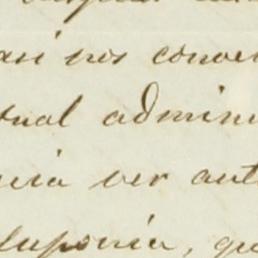 asi nos conven
tual admin
cia ver aut
suponia, qu